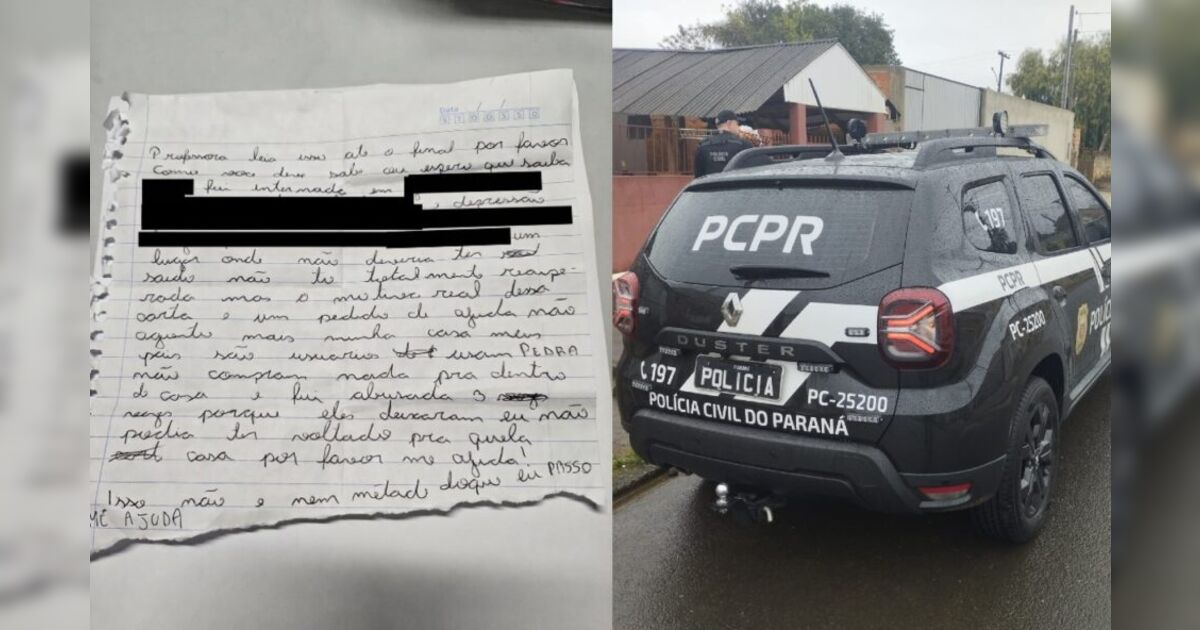 Data
Professora leia isso até o final por favor
Como voce deve sabe ou espero que saiba
fui internada em
e depressão
um
lugar onde não deveria ter
saido não to totalmente recupe-
rada mas o motivo real dessa
carta e um pedido de ajuda não
aguento mais minha casa meus
pais são usuarios usam PEDRA
não compram nada pra dentro
de casa e fui abusada 3
vezes porque eles deixaram eu não
podia ter voltado pra quela
casa por favor me ajuda!
Isso não e nem metade doque eu PASSO
ME AJUDA
POLÍCIA CIVIL
PCPR
197
PCPR
PC-25200
POLÍC
DUSTER
197
POLICIA
PC-25200
POLÍCIA CIVIL DO PARANÁ